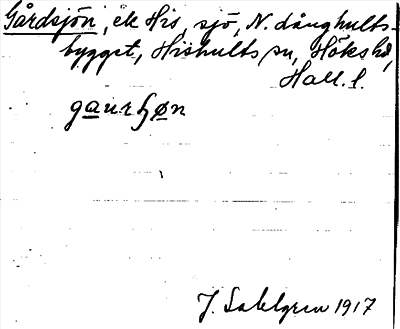 Gårdsjön, ek His, sjö, N. Långhults-
bygget, Hishults sn, Höks hd,
Hall. l.
gaurʃøn
J. Sahlgren 1917